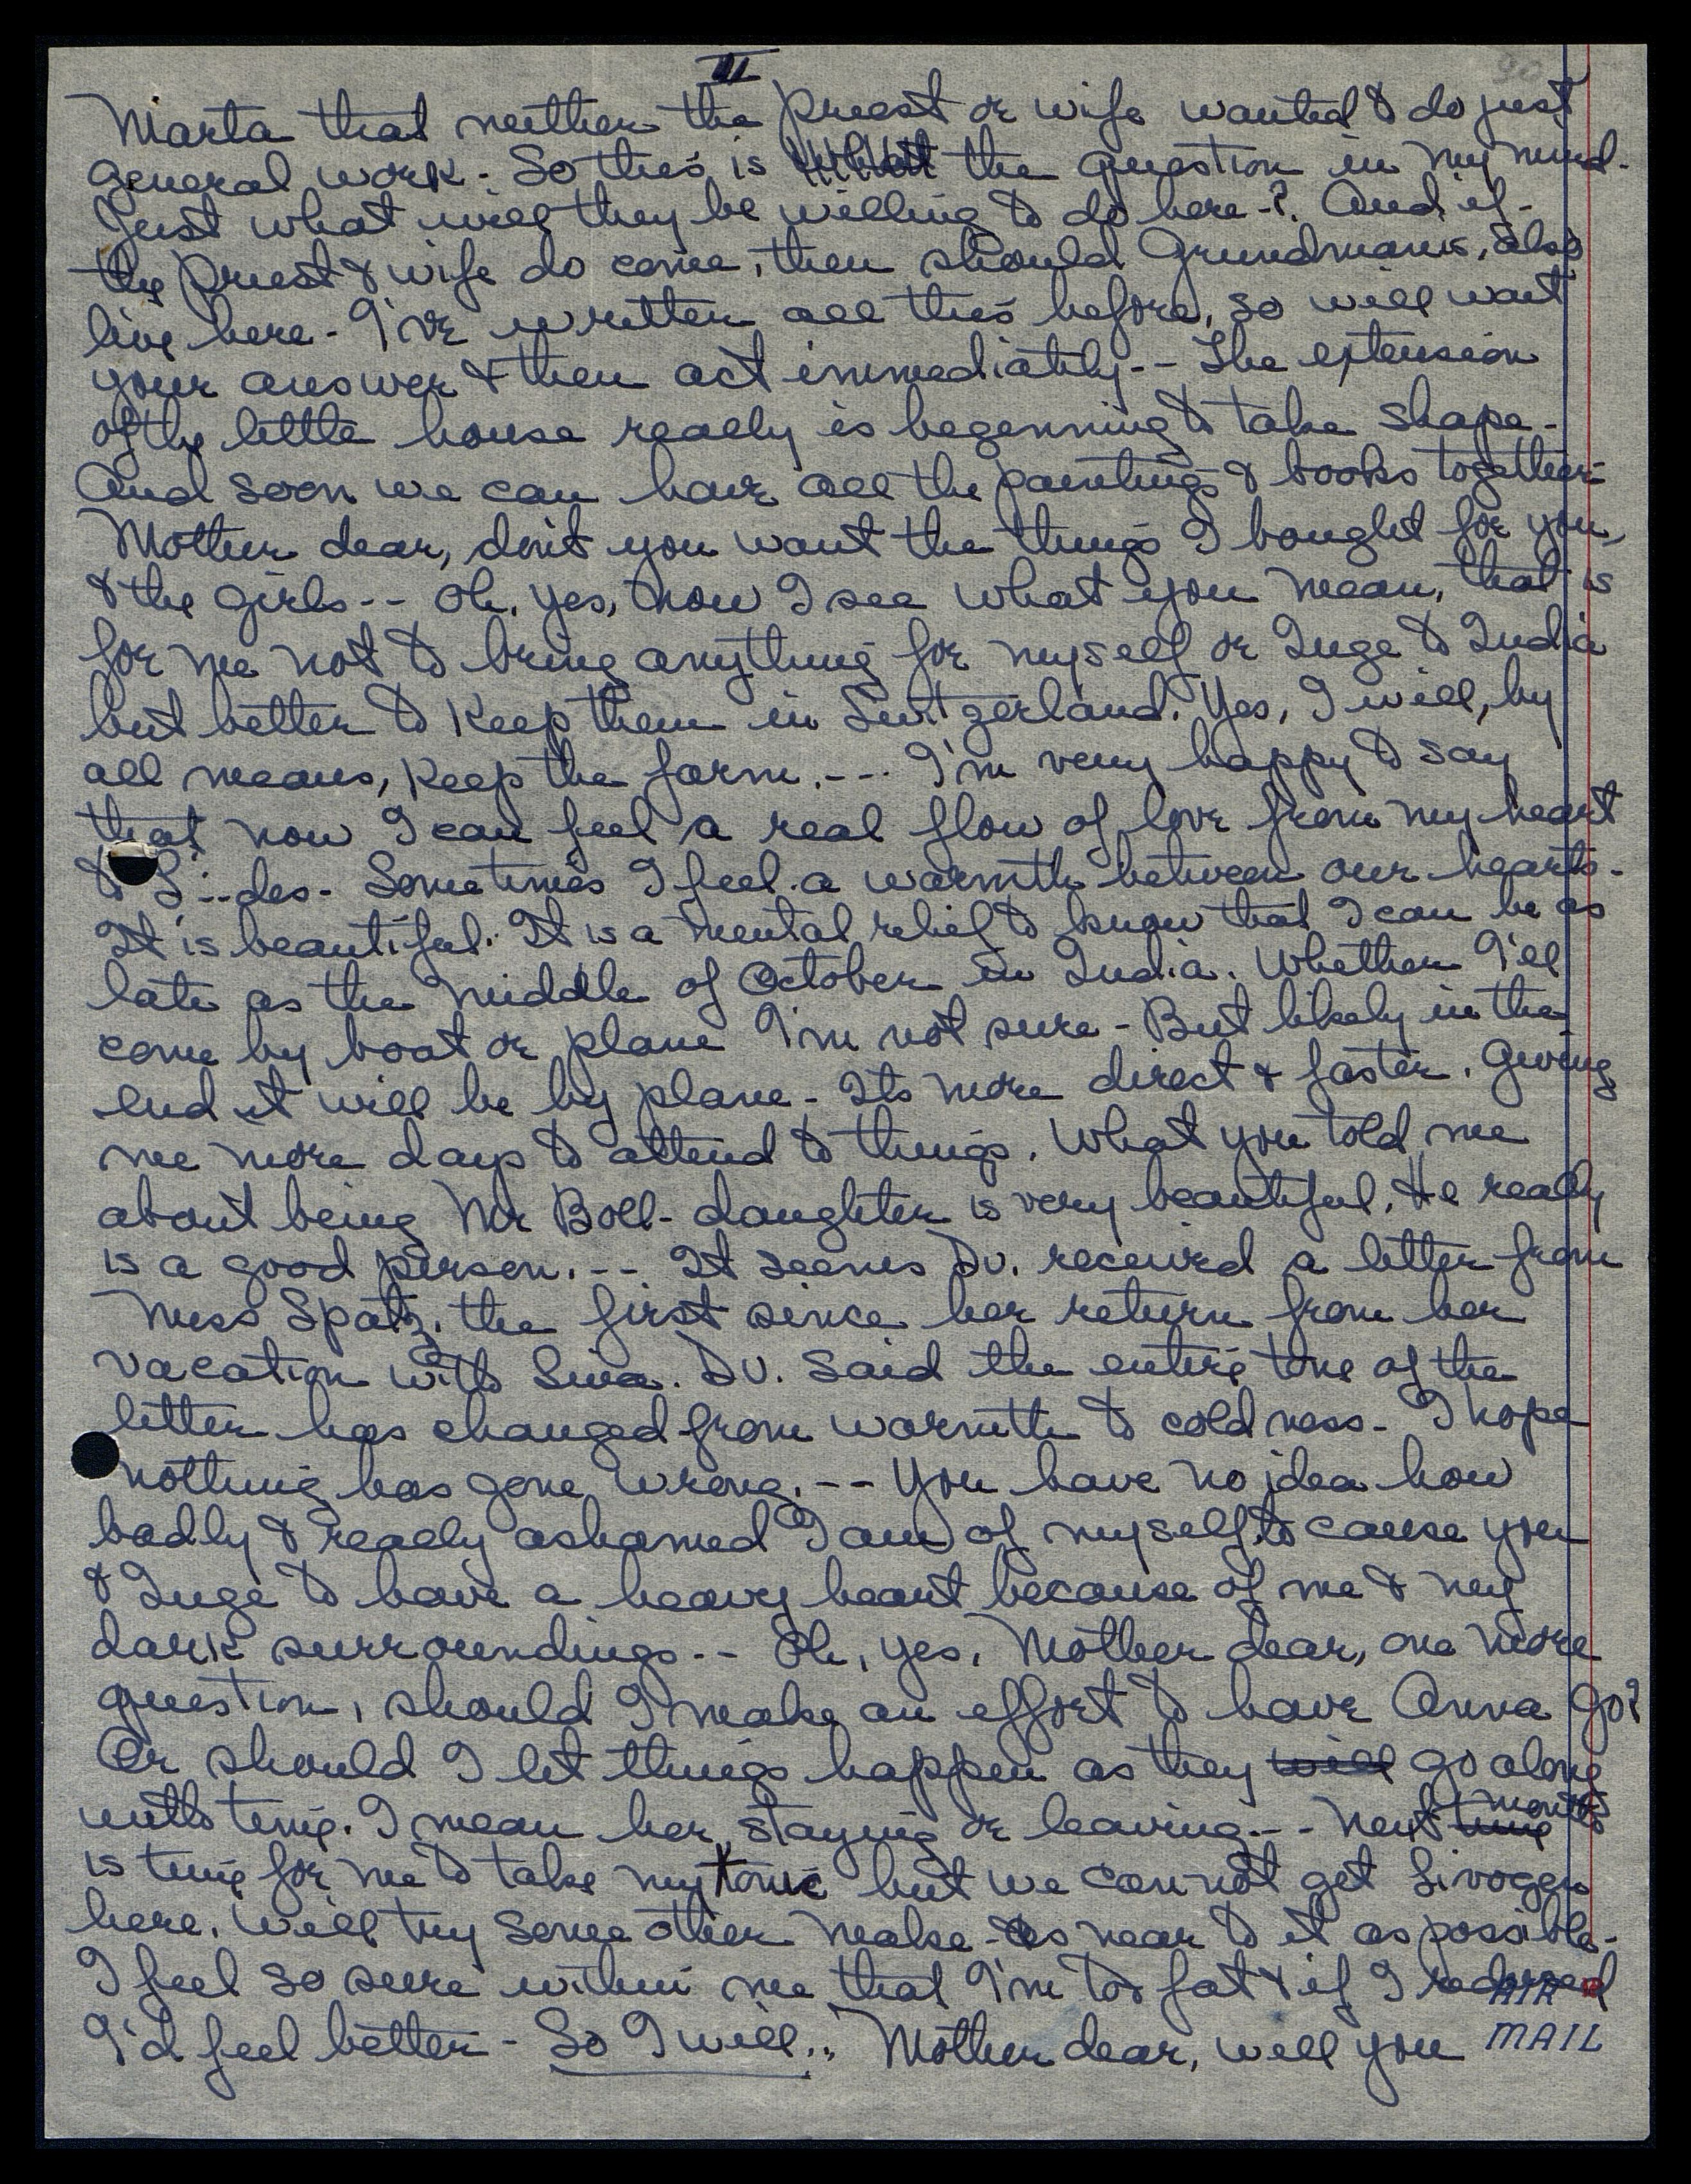 II
90
Marta that neither the priest or wife wanted to do just
general work. So this is the question in my mind.
Just what will they be willing to do here-? And if-
the priest & wife do come, then should Grundmanns, also
live here - I've written all this before, so will wait
your answer & then act immediately -- The extension
of the little house really is beginning to take shape -
And soon we can have all the paintings & books together -
Mother dear, don't you want the things I bought for you,
& the girls -- Oh, yes, now I see what you mean, that is
for me not to bring anything for myself or Inge to India
but better to keep them in Switzerland. Yes, I will, by
all means, keep the farm. --- I'm very happy to say
that now I can feel a real flow of love from my heart
to S...des - Sometimes I feel a warmth between our hearts -
It is beautiful. It is a mental relief to know that I can be as
late as the middle of October in India. Whether I'll
come by boat or plane I'm not sure - But likely in the
end it will be by plane - Its more direct & faster. Giving
me more days to attend to things. What you told me
about being Mr Boll - daughter is very beautiful. He really
is a good person. -- It seems Dv. received a letter from
Miss Spatz, the first since her return from her
vacation with Siva. Dv. said the entire tone of the
letter has changed from warmth to coldness - I hope
nothing has gone wrong. -- You have no idea how
badly & really ashamed I am of myself to cause you
& Inge to have a heavy heart because of me & my
dark surroundings -- Oh, yes, Mother dear, one more
question, should I make an effort to have Anna go?
Or should I let things happen as they will go along
with time. I mean her, staying or leaving --- Next time month
is time for me to take my tonic but we cannot get Livogen
here. Will try some other make - as near to it as possible -
I feel so sure within me that I'm too fat & if I reduced
I'd feel better - So I will.. Mother dear, will you
AIR
MAIL